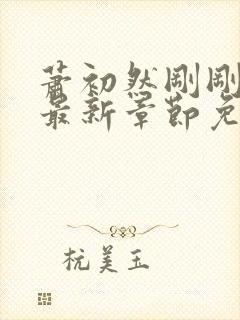 萧初然刚刚
最新章节免
杭美玉